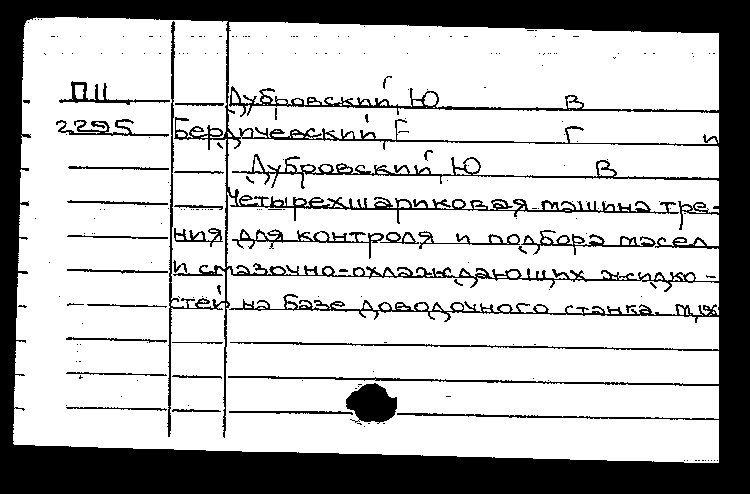 П11 Дубровский, Ю В
2295 Бердичевский, Е Г и
Дубровский, Ю В
Четырехшариковая машина тре-
ния для контроля и подбора масел
и смазочно-охлаждающих жидко-
стей на базе доводочного станка.